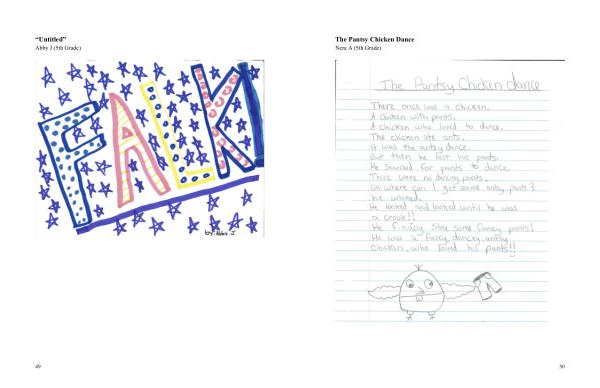 "Untitled"
Abby J (5th Grade)
FALK
by: Abby J
49
The Pantsy Chicken Dance
Nera A (5th Grade)
The Pantsy Chicken dance
There once was a chicken.
A chicken with pants.
A chicken who loved to dance.
The chicken ate ants.
It was the antsy dance.
But then he lost his pants.
He searched for pants to dance.
There were no dancing pants.
Oh where can I get some antsy pants?
he whined.
He looked and looked until he was
a crook!!
He finally stole some fancy pants!
He was a fancy, dancey, antsy
Chicken who loved his pants!!
50